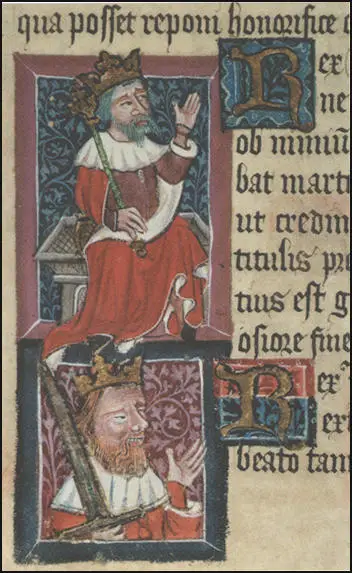 qua posset reponi honorifice c
Rex
ne
ob nimiū
bat marti
ut credim
titulis pre
tius est g
osiore fine
Rex
exi
beato tam